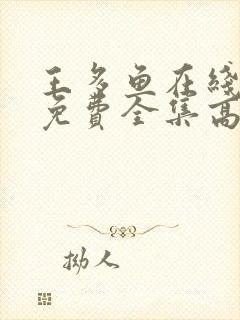 王多鱼在线
免费全集高
拗人